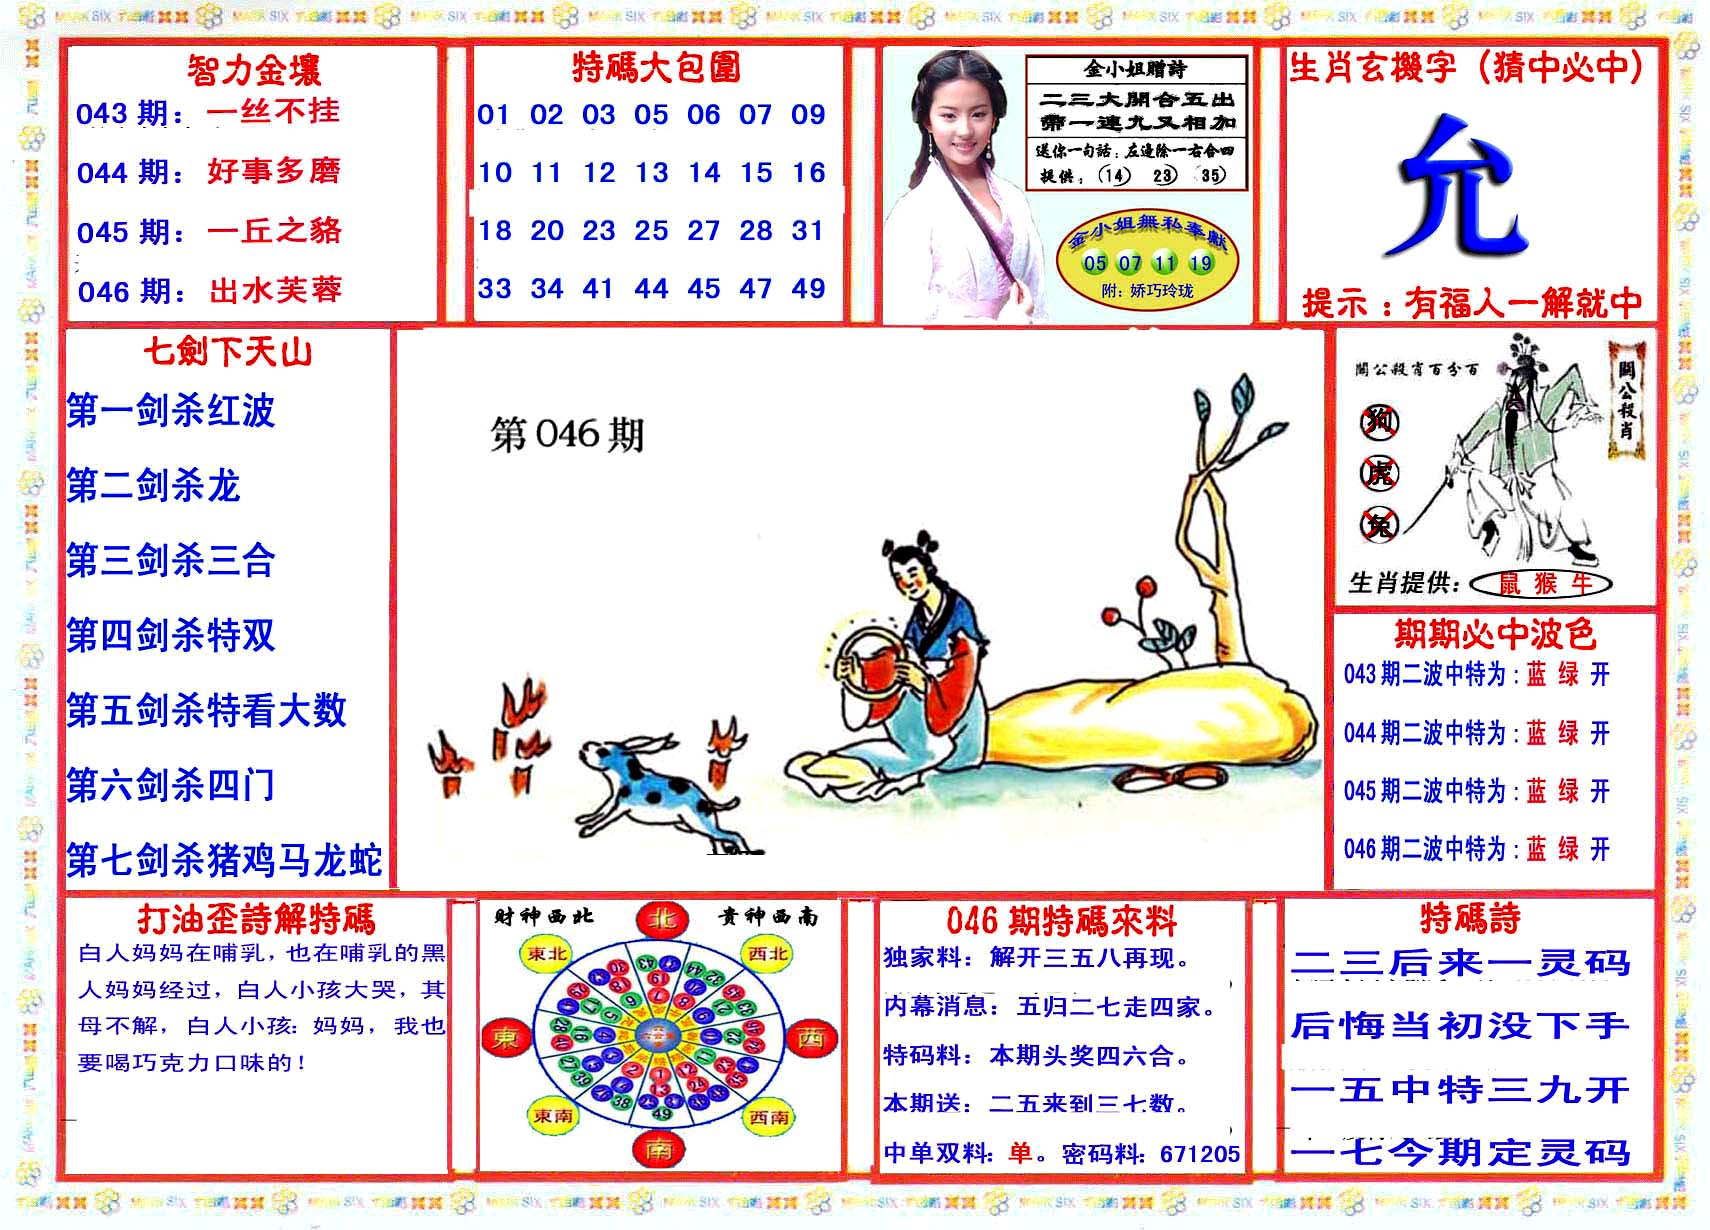 智力金壤
043 期：一丝不挂
044 期：好事多磨
045 期：一丘之貉
046 期：出水芙蓉
特碼大包圍
01 02 03 05 06 07 09
10 11 12 13 14 15 16
18 20 23 25 27 28 31
33 34 41 44 45 47 49
金小姐贈詩
二三大開合五出
帶一連九又相加
送你一句話：左邊除一右合四
提供：(14) 23) 35)
金小姐無私奉獻
05 07 11 19
附：娇巧玲珑
生肖玄機字（猜中必中）
允
提示：有福人一解就中
七劍下天山
第一剑杀红波
第二剑杀龙
第三剑杀三合
第四剑杀特双
第五剑杀特看大数
第六剑杀四门
第七剑杀猪鸡马龙蛇
第 046 期
關公殺肖百分百
關公殺肖
狗
虎
兔
生肖提供：鼠 猴 牛
期期必中波色
043 期二波中特为：蓝 绿 开
044 期二波中特为：蓝 绿 开
045 期二波中特为：蓝 绿 开
046 期二波中特为：蓝 绿 开
打油歪詩解特碼
白人妈妈在哺乳，也在哺乳的黑
人妈妈经过，白人小孩大哭，其
母不解，白人小孩：妈妈，我也
要喝巧克力口味的！
財神西北
貴神西南
北
東北
西北
東
西
東南
西南
南
046 期特碼來料
独家料：解开三五八再现。
内幕消息：五归二七走四家。
特码料：本期头奖四六合。
本期送：二五来到三七数。
中单双料：单。密码料：671205
特碼詩
二三后来一灵码
后悔当初没下手
一五中特三九开
一七今期定灵码